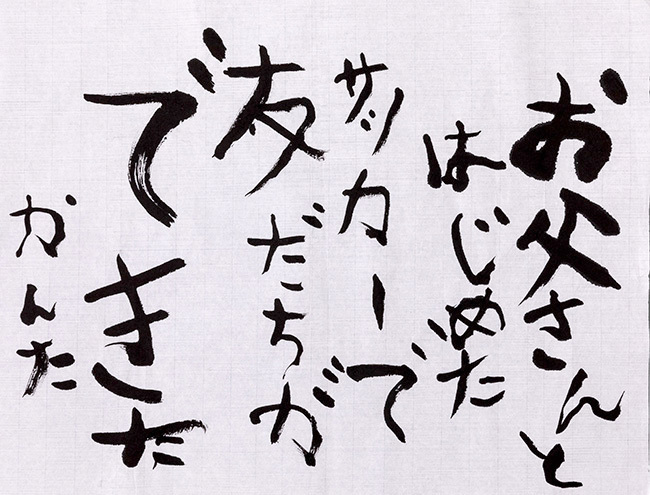 お父さんと
はじめた
サッカーで
友だちが
できた
かんた